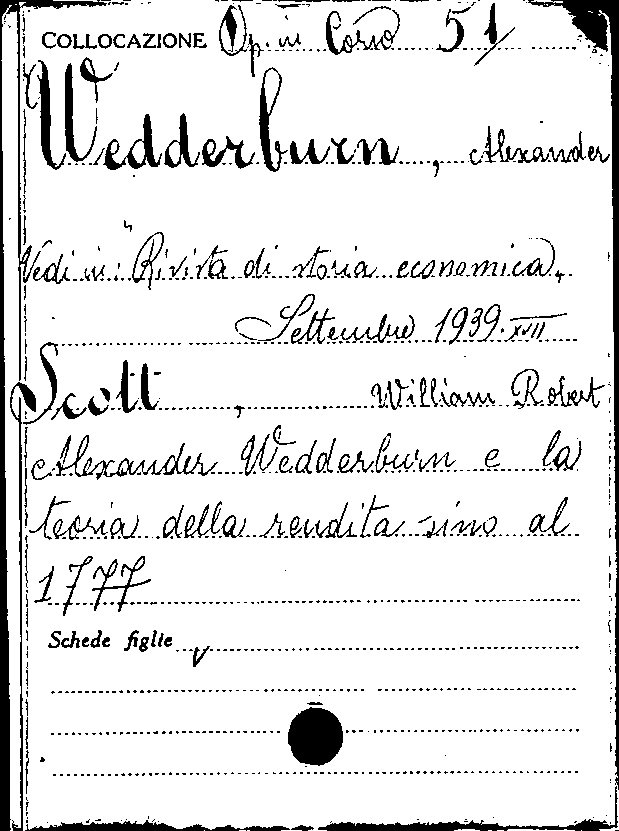 COLLOCAZIONE Op. in Corso 51/
Wedderburn, Alexander
Vedi in: "Rivista di storia economica,
Settembre 1939. XVII
Scott, William Robert
Alexander Wedderburn e la
teoria della rendita sino al
1777
Schede figlie v